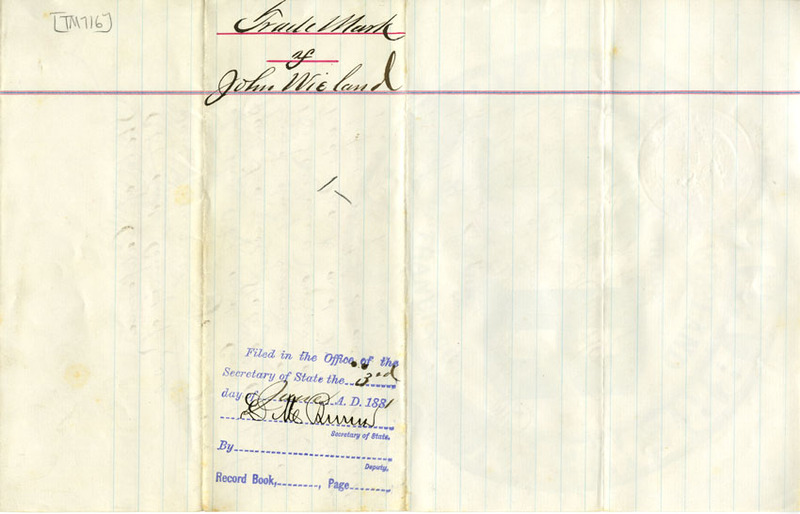 [TM716]
Trade Mark
of
John Wieland
Filed in the Office of the
Secretary of State the 3rd
day of June A. D. 1881
D M Burns
Secretary of State.
By
Deputy.
Record Book, , Page